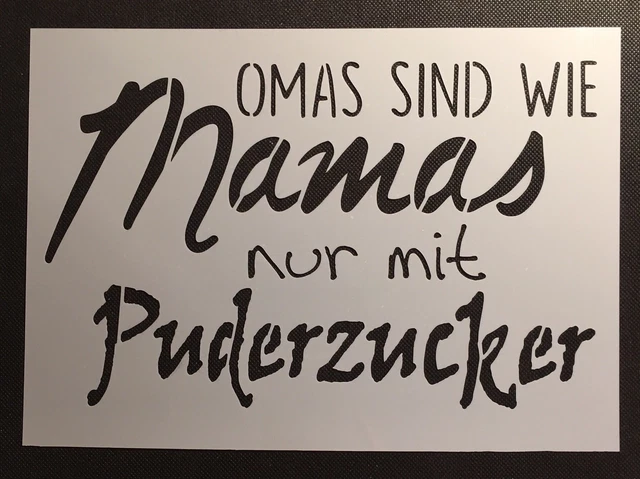 OMAS SIND WIE
Mamas
nur mit
Puderzucker